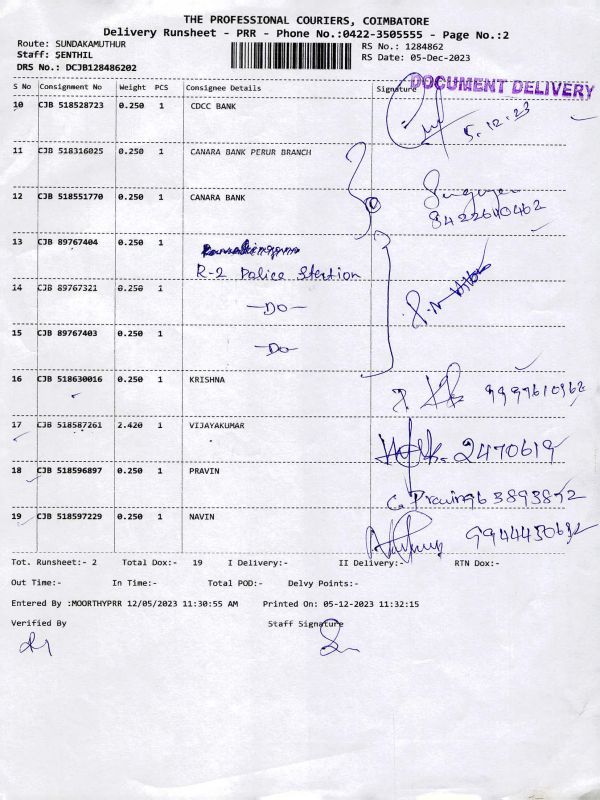 THE PROFESSIONAL COURIERS, COIMBATORE
Delivery Runsheet - PRR - Phone No.:0422-3505555 - Page No.:2
Route: SUNDAKAMUTHUR
Staff: SENTHIL
DRS No.: DCJB128486202
RS No.: 1284862
RS Date: 05-Dec-2023
DOCUMENT DELIVERY
S No Consignment No Weight PCS Consignee Details Signature
10 CJB 518528723 0.250 1 CDCC BANK 5.12.23
11 CJB 518316025 0.250 1 CANARA BANK PERUR BRANCH
12 CJB 518551770 0.250 1 CANARA BANK
8422610462
13 CJB 89767404 0.250 1
R-2 Police Station
14 CJB 89767321 0.250 1
-Do-
15 CJB 89767403 0.250 1
-Do-
16 CJB 518630016 0.250 1 KRISHNA
17 CJB 518587261 2.420 1 VIJAYAKUMAR
2470619
18 CJB 518596897 0.250 1 PRAVIN
19 CJB 518597229 0.250 1 NAVIN
Tot. Runsheet:- 2 Total Dox:- 19 I Delivery:- II Delivery:- RTN Dox:-
Out Time:- In Time:- Total POD:- Delvy Points:-
Entered By :MOORTHYPRR 12/05/2023 11:30:55 AM Printed On: 05-12-2023 11:32:15
Verified By Staff Signature